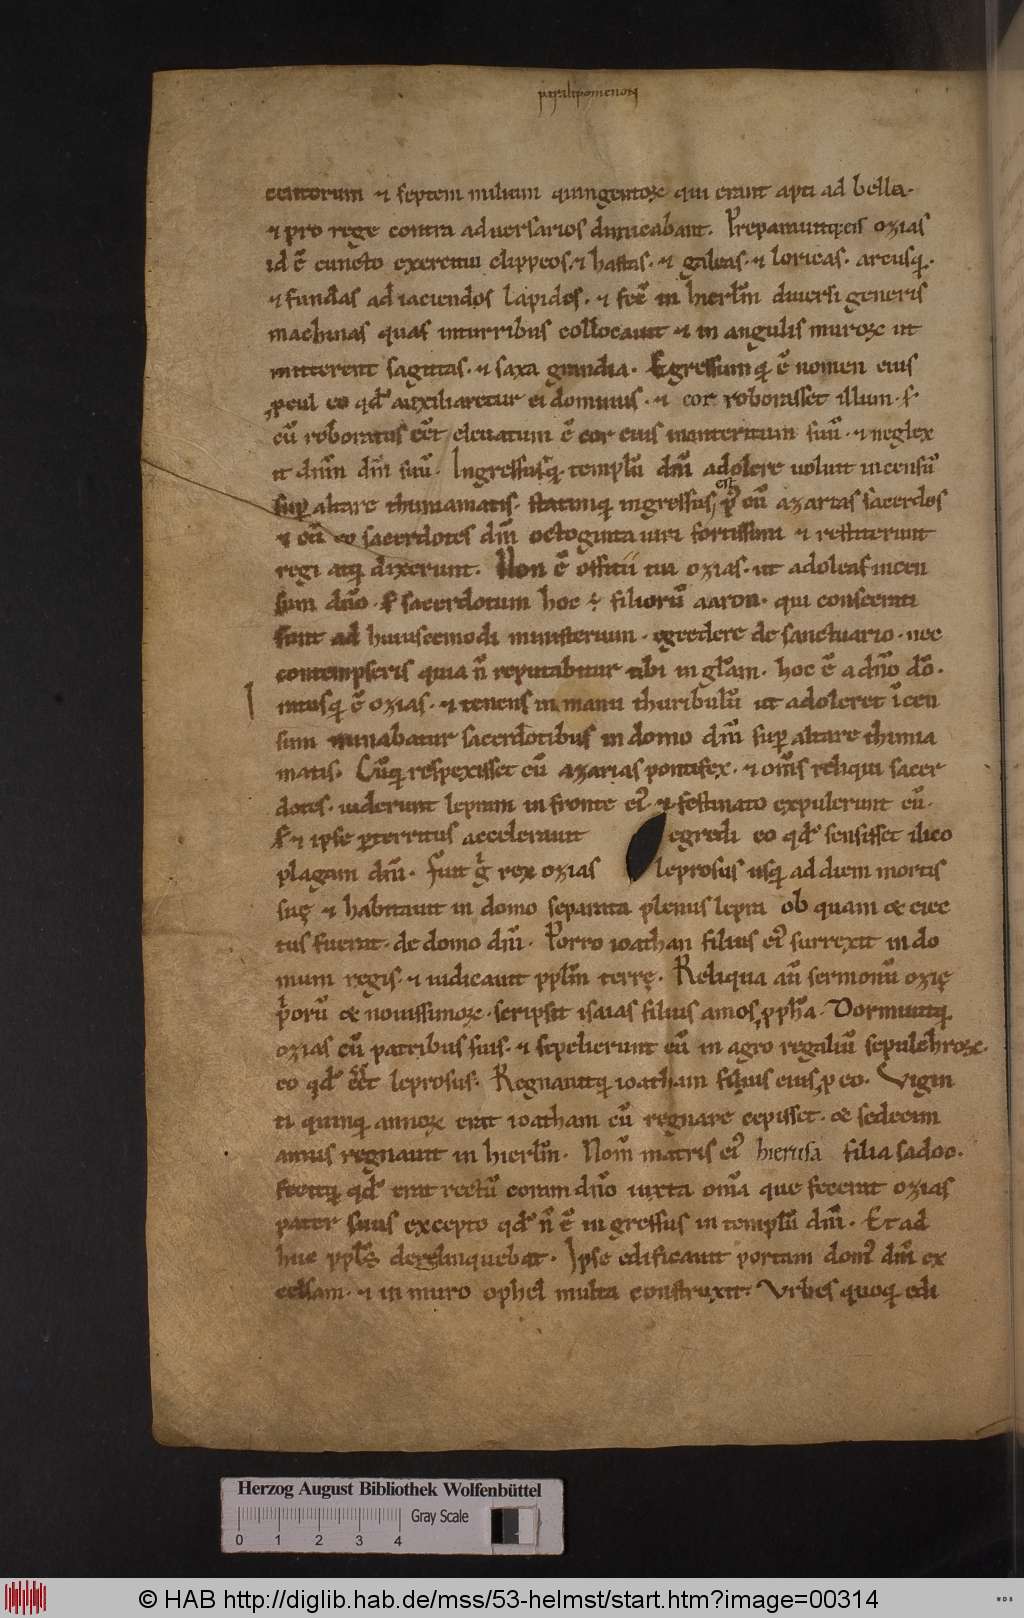 paralipomenon
centorum et septem milium quingentoꝝ qui erant apti ad bella·
et pro rege contra adversarios dimicabant. Preparavitq; eis ozias
id ē cuncto exercitui clippeos· et hastas· et galeas· et loricas· arcusq;·
et fundas ad iaciendos lapides· et fec̄ in hierl̄m diversi generis
machinas quas in turribus collocavit et in angulis muroꝝ ut
mitterent sagittas· et saxa grandia· Egressumq; ē nomen eius
ꝓcul eo qd̄ auxiliaretur ei dominus· et cor roborasset illum· s;
cū roboratus eēt elevatum ē cor eius in interitum suū· et neglex
it dn̄m dm̄ suū· Ingressusq; templū dn̄i adolere voluit incensū
sup altare thimiamatis· statimq; ingressus est p̄ eū azarias sacerdos
et cū eo sacerdotes dn̄i octoginta viri fortissimi et restiterunt
regi atq; dixerunt. Non ē offitiū tui ozias· ut adoleas incen
sum dn̄o· s; sacerdotum hoc ē filiorū aaron· qui consecrati
sunt ad huiuscemodi ministerium· egredere de sanctuario· nec
contempseris quia n̄ reputabitur tibi in gl̄am· hoc ē a dn̄o dō·
I
ratusq; ē ozias· et tenens in manu thuribulū ut adoleret īcen
sum minabatur sacerdotibus in domo dn̄i sup altare thimia
matis· Cūq; respexisset eū azarias pontifex· et om̄s reliqui sacer
dotes· viderunt lepram in fronte ei᷒· et festinato expulerunt eū·
S; et ipse ꝑterritus acceleravit egredi eo qd̄ sensisset ilico
plagam dn̄i· Fuit g̊ rex ozias leprosus usq; ad diem mortis
suę et habitavit in domo separata plenus lepra ob quam et eiec
tus fuerat· de domo dn̄i· Porro ioathan filius ei᷒ surrexit in do
mum regis· et iudicavit ppl̄m terrę· Reliqua aū sermonū ozię
p̄orū et novissimoꝝ· scripsit isaias filius amos ꝓph̄a· Dormivitq;
ozias cū patribus suis· et sepelierunt eū in agro regaliū sepulchroꝝ·
eo qd̄ eēt leprosus· Regnavitq; ioatham filius eius ꝓ eo· Vigin
ti quinq; annoꝝ erat ioatham cū regnare cepisset· et sedecim
annis regnavit in hierl̄m· Nom̄ matris ei᷒ hierusa filia sadoc·
fecitq; qd̄ erat rectū coram dn̄o iuxta om̄a que fecerat ozias
pater suus excepto qd̄ n̄ ē ingressus in templū dn̄i· Et ad
huc ppl̄s derelinquebat· Ipse edificavit portam dom᷒ dn̄i ex
celsam· et in muro ophel multa construxit· Urbes quoq; edi
Herzog August Bibliothek Wolfenbüttel
Gray Scale
0 1 2 3 4
© HAB http://diglib.hab.de/mss/53-helmst/start.htm?image=00314